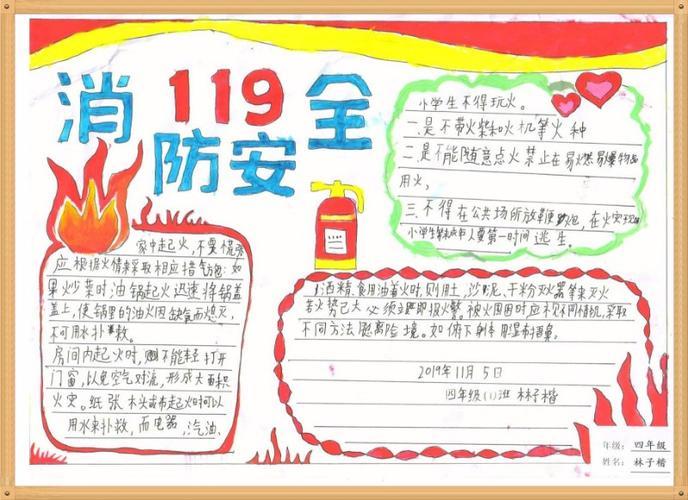 消防安全
119
小学生不得玩火。
一是不带火柴和火机等火种
二.是不能随意点火禁止在易燃易爆物品
用火,
三.不得在公共场所放鞭炮,在火灾
小学生第一时间逃生.
家中起火,不要慌
应根据火情来采取相应措施:如
果炒菜时油锅起火迅速将锅盖
盖上,使锅里的油火因缺氧而熄灭,
不可用水扑救。
房间内起火时,不能轻打开
门窗,以免空气对流,形成大面积
火灾。纸张木头或布起火时可以
用水来扑救,而电器,汽油、
酒精、食用油着火时,则用土、沙、泥、干粉灭火器等来灭火
若火势已大必须立即报火警,被火围困时应不同情况,采取
不同方法脱离险境。如俯下用湿
2019年11月5日
四年级(1)班 林子楷
年级:四年级
姓名:林子楷